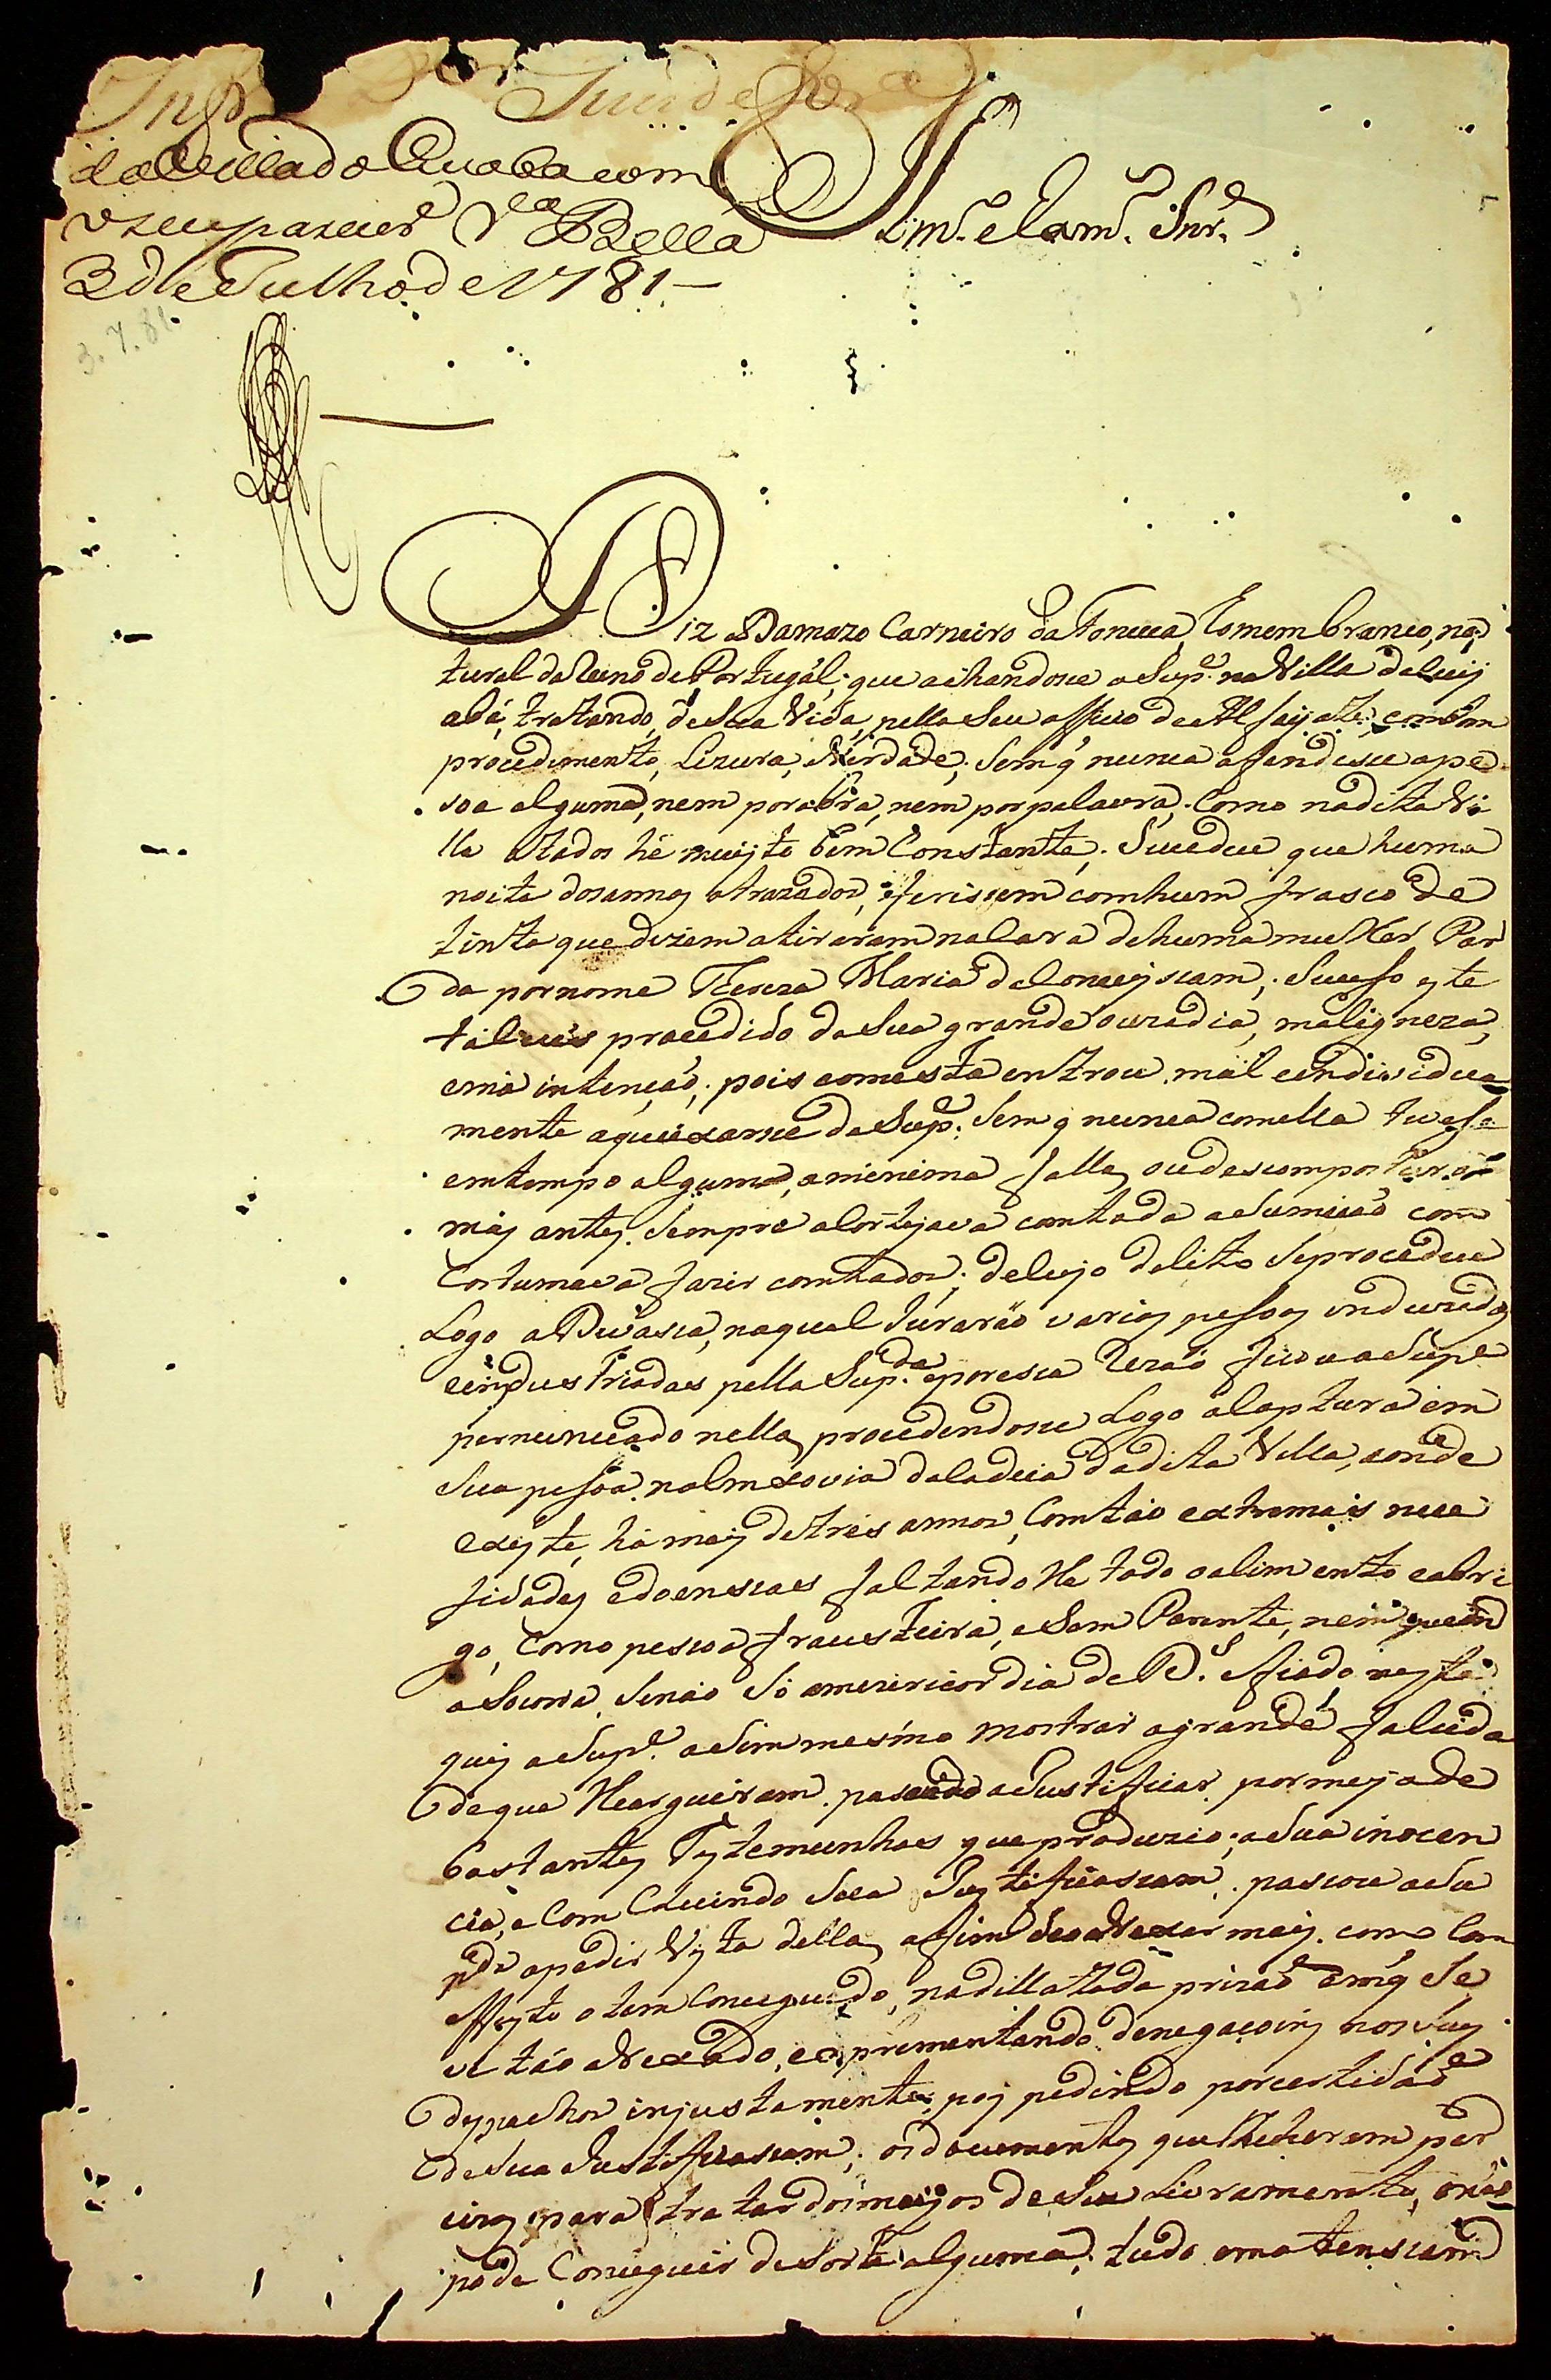 Juiz de Fora
da Villa do Cuaba com
o seu parecer V.ª Bella
3 de Julho de 1781 —
3.7.81.
Illm.º e Exm.º Snr.
Diz Damazo Carneiro da Fonceca, homem branco, na
tural do Reino de Portugál; que achandose o Sup.e na Villa do Cuij
abá, tratando, de Sua Vida, pello Seu officio de Alfaijate, com bom
procedimento, Lizura, e Verdade; Sem q nunca ofendesce a pe
soa alguma, nem por obra, nem por palavra, Como na dita Vi
lla atados hé muijto bem Constante, Sucedeu que huma
noite dos annos atrazados, ferisem com hum frasco de
tinta que dizem atiraram na Cara de huma mulher Par
da por nome Thereza Maria da Conceijscam, Suceso este
talves procedido da Sua grande ouzadia, maligneza,
e má intençaõ, pois com esta entrou mal e individua
mente a queixarse do Sup.e Sem q nunca com ella tivese
em tempo algum, a minima falla, ou descompostura
mas antes Sempre a Cortejava com toda a Sumicaõ como
Costumava fazer com todos; de Cujo delito Se procedeu
Logo a Devasca, na qual Juraraõ varias pesoas induzidas
e industriadas pella Sup.da e por esca Rezaõ ficou o Sup.e
pernunciado nella, procedendose Logo a Captura em
Sua pesoa na Imxovia da Cadeia da dita Villa, aonde
existe, há mais de tres annos, Com taõ extremas nece
sidades e doenscas faltando lhe todo o alimento e abri
go, Como pescoa frausteira, e Sem Parente, nem quem
o Socorra, Senaõ Só a mizericordia de D.s e fiado nesta
quis o Sup.e a Sim mesmo mostrar a grande falcida
de que lhe arguiram, pascando a Justificar por meijo de
bastantes Testemunhas que produzio; a Sua inocen
cia, e Com Cluindo Sua Justificascam, pascou a Su
p.da a pedir Vista della, a fim de o a Vexar mais, como Com
effeyto o tem Conceguido, na dillatada prizaõ em q Se
ve taõ a Vexado, exprementando denegacoins nos Seus
despachos injustamente, pois pedindo por certidaõ
de Sua Justificascam, os documentos que lhe heram per
cizos para tratar dos meijos de Seu Livramento, o naõ
pode Conceguir de Sorte alguma; tudo em atenscam